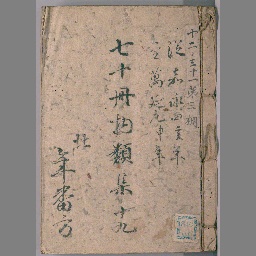 十二ノ三十一第三棚
従嘉永四亥年
至萬延元申年
七十冊物類集 十九
北
年番方